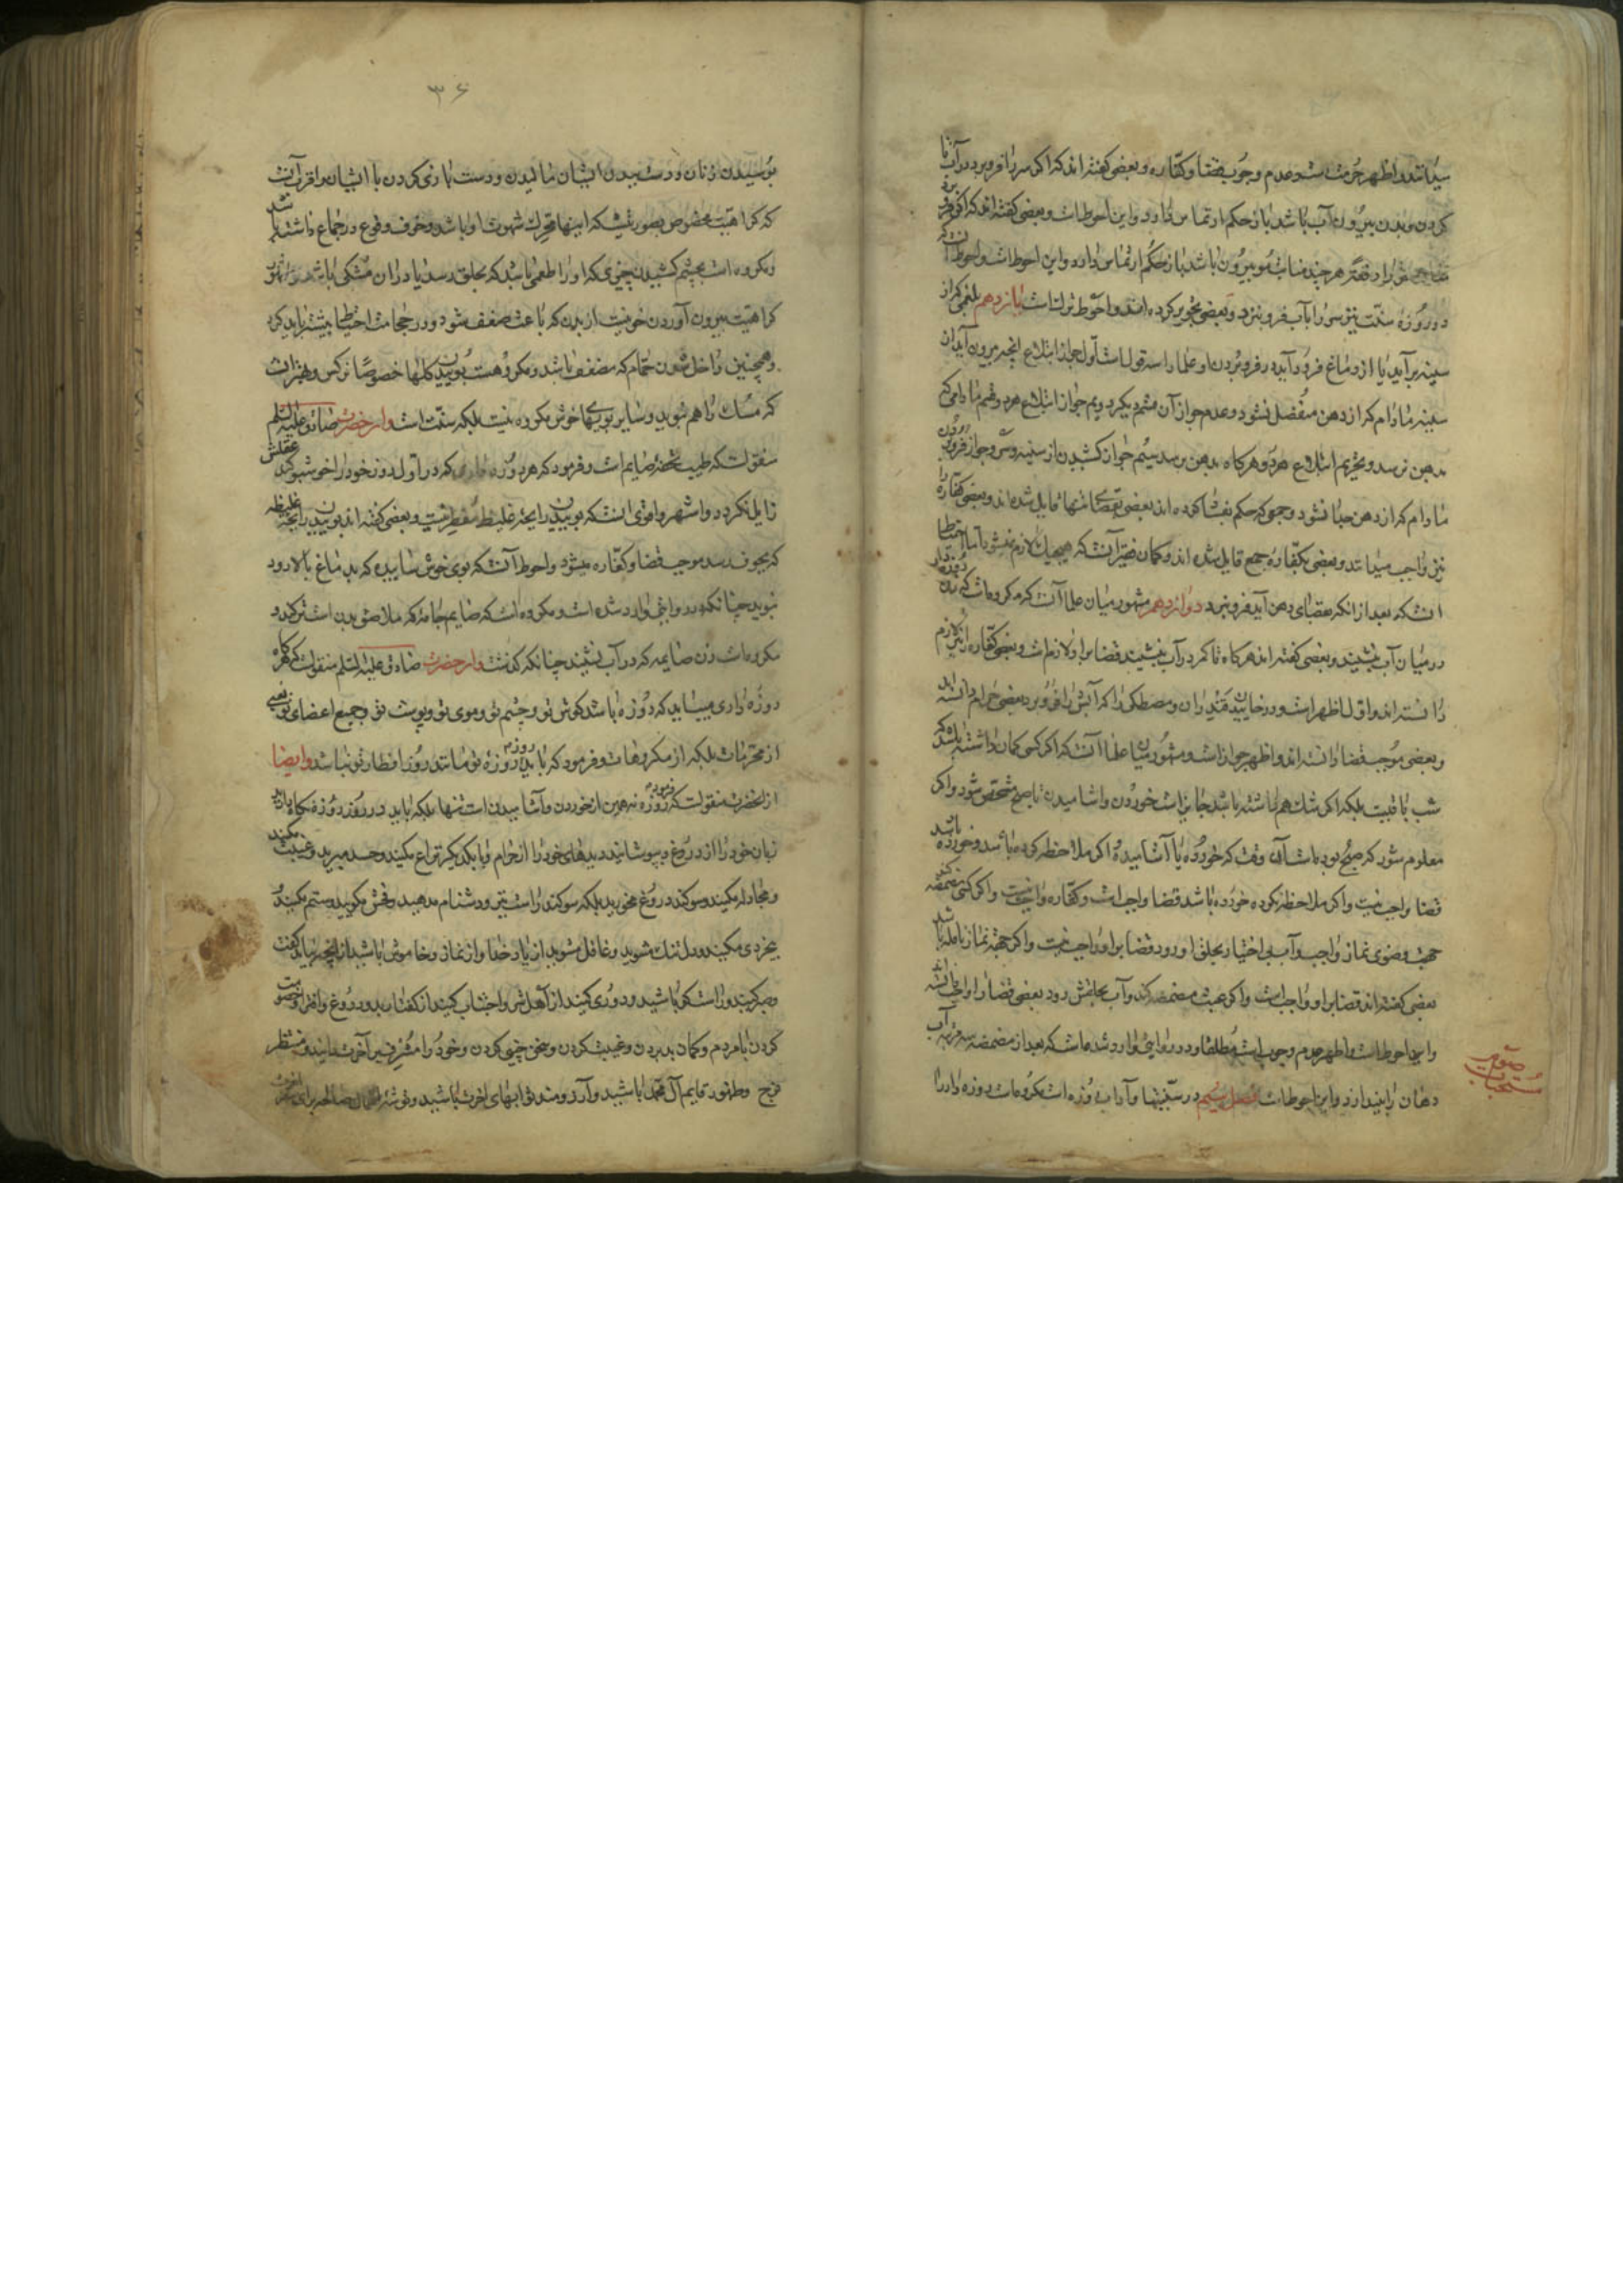 میدانند و اظهر حرمتست و عدم وجوب قضا و کفاره و بعضی گفته‌اند که اگر سر را فرو برد در آب تا
کردن و بدن بیرون آب باشد باز حکم ارتماس دارد و این احوط است و بعضی گفته‌اند که اگر
را دفعة هر چند منابت مو بیرون باشد باز حکم ارتماس دارد و این احوط است و احوط
در روزهٔ سنت نیز سر را بآب فرو نبرد و بعضی تجویز کرده‌اند و احوط ترکست یازدهم بلغمی که از
سینه برآید یا از دماغ فرود آید در فرو بردن او علما را سه قول است اول جواز ابتلاع آنچه بیرون آید از
سینه مادام که از دهن منفصل نشود و عدم جواز آن قسم دیگر دویم جواز ابتلاع هر دو قسم مادامی که
بدهن نرسد و تحریم ابتلاع هر دو هرگاه بدهن برسد سیم جواز کشیدن از سینه و سر و جواز فرو بردن
مادام که از دهن جدا نشود و جمعی که حکم بفساد کرده‌اند بعضی بقضای تنها قایل شده‌اند و بعضی کفاره را
نیز واجب میدانند و بعضی بکفارهٔ جمع قایل شده‌اند و گمان فقیر آنست که هیچیک لازم نمیشود اما احتیاط
آنست که بعد از آنکه بفضای دهن آید فرو نبرد دوازدهم مشهور میان علما آنست که مکروهست که زن روزه‌دار
در میان آب بنشیند و بعضی گفته‌اند هرگاه تا کمر در آب بنشیند قضا بر او لازم است و بعضی کفاره را نیز لازم
دانسته‌اند و اول اظهر است و در خاییدن قندران و مصطکی را که آبش را فرو برد بعضی حرام دانسته‌اند
و بعضی موجب قضا دانسته‌اند و اظهر جواز است و مشهور میان علما آنست که اگر کسی گمان داشته باشد که
شب باقیست بلکه اگر شک هم داشته باشد جایز است خوردن و آشامیدن تا صبح مشخص شود و اگر
معلوم شود که صبح بوده است آن وقت که خورده یا آشامیده اگر ملاحظه کرده باشد و خورده باشد
قضا واجب نیست و اگر ملاحظه نکرده خورده باشد قضا واجبست و کفاره واجب نیست و اگر کسی مضمضه کند
جهت وضوی نماز واجب و آب بی اختیار بحلق او رود قضا بر او واجب نیست و اگر جهة نماز نافله باشد
بعضی گفته‌اند قضا بر او واجبست و اگر عبث مضمضه کند و آب بحلقش رود بعضی قضا را واجب دانسته‌اند
و این احوط است و اظهر عدم وجوبست مطلقا و در روایتی وارد شده است که بعد از مضمضه سه مرتبه آب
دهان را بیندازد و این احوط است فصل سیم در سنتیها و آداب روزه است مکروهست روزه دار را
مستحبات
۳۶
بوسیدن زنان و دست بدن ایشان مالیدن و دست بازی کردن با ایشان و اقرب آنست
که کراهیت مخصوص بصورتیست که اینها محرک شهوت او باشد و خوف وقوع در جماع داشته باشد
و مکروه است بچشم کشیدن چیزی که او را طعمی باشد که بحلق رسد یا در آن مشکی باشد و مشهور
کراهیت بیرون آوردن خونیست از بدن که باعث ضعف شود و در حجامت احتیاط بیشتر باید کرد
و همچنین داخل شدن حمام که مضعف باشد و مکروهست بوییدن گلها خصوصا نرگس و بهتر آنست
که مشک را هم نبوید و سایر بویهای خوش مکروه نیست بلکه سنت است و از حضرت صادق علیه السلم
منقولست که طیب تحفهٔ صایم است و فرمود که هر روزه‌داری که در اول روز خود را خوشبو کند عقلش
زایل نگردد و اشهر و اقوی آنست که بوییدن رایحهٔ غلیظ مفطر نیست و بعضی گفته‌اند بوییدن رایحهٔ غلیظه
که بجوف رسد موجب قضا و کفاره میشود و احوط آنکه بوی خوش ساییده که بدماغ بالا رود
نبوید چنانکه در روایتی وارد شده است و مکروه است که صایم جامه که ملاصق بدن است تر کند و
مکروه است زن صایمه که در آب نشیند چنانکه گذشت و از حضرت صادق علیه السلم منقولست که هرگاه
روزه داری میباید که روزه باشد گوش تو و چشم تو و موی تو و پوست تو و جمیع اعضای تو یعنی
از محرمات بلکه از مکروهات و فرمود که باید روز روزهٔ تو مانند روز افطار تو نباشد و ایضا
از آنحضرت منقولست که فرمود روزه نه همین از خوردن و آشامیدن است تنها بلکه باید در روز روزه نگاه دارید
زبان خود را از دروغ و بپوشانید دیدهای خود را از حرام و با یکدیگر نزاع مکنید و حسد مبرید و غیبت مکنید
و مجادله مکنید و سوگند دروغ مخورید بلکه سوگند راست نیز و دشنام مدهید و فحش مگویید و ستم مکنید و
بیخردی مکنید و دلتنگ مشوید و غافل مشوید از یاد خدا و از نماز و خاموش باشید از آنچه نباید گفت
و صبر کنید و راستگو باشید و دوری کنید از اهل شر و اجتناب کنید از گفتار بد و دروغ و افترا و خصومت
کردن با مردم و گمان بد بردن و غیبت کردن و سخن چینی کردن و خود را مشرف بر آخرت دانید و منتظر
فرج و ظهور قایم آل محمد باشید و آرزومند ثوابهای آخرت باشید و توشهٔ اعمال صالحه برای سفر آخرت